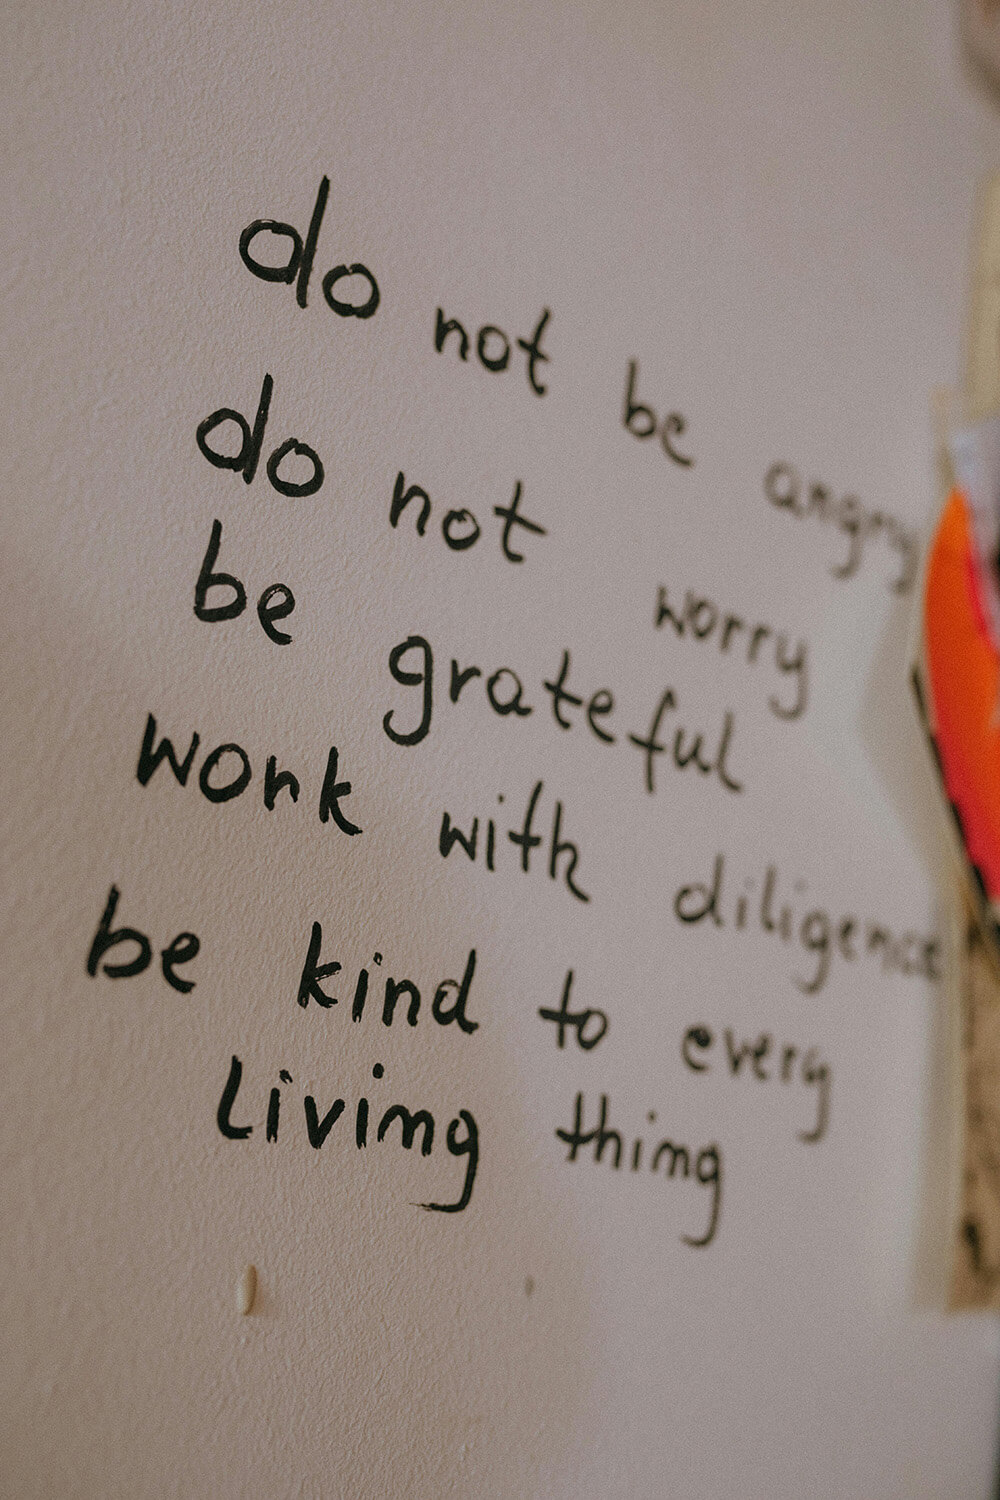 do not be angry
do not worry
be grateful
work with diligence
be kind to every
Living thing